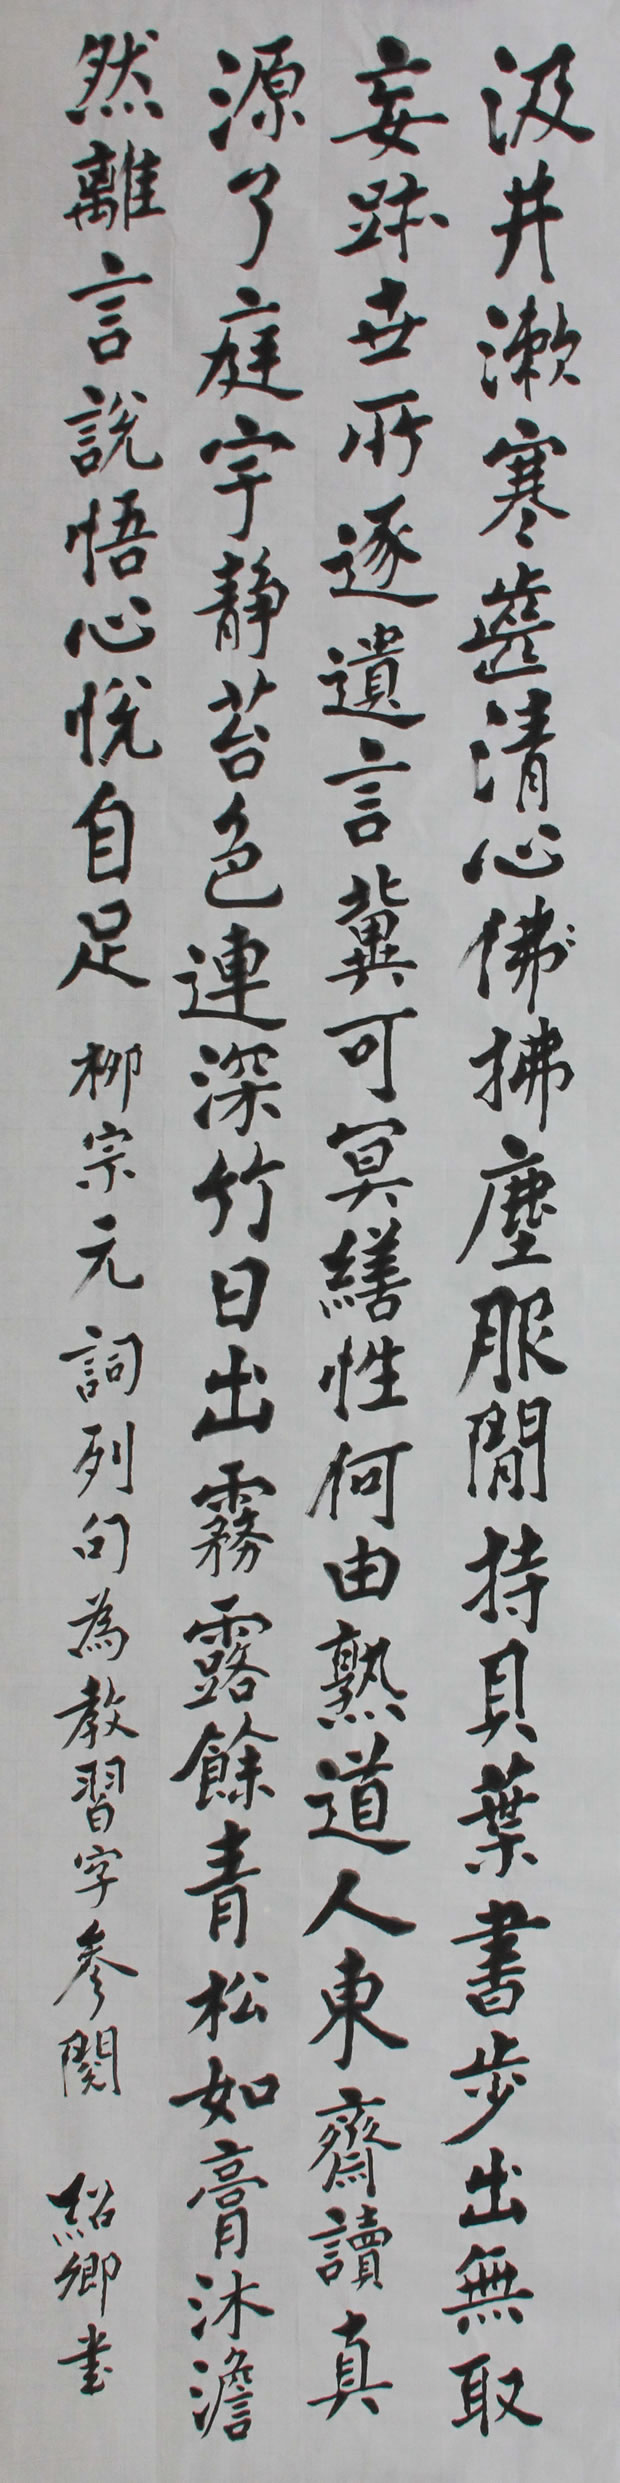 汲井漱寒齒清心佛拂塵服閒持貝葉書步出無取
妄跡世所逐遺言冀可冥繕性何由熟道人東齋讀真
源了庭宇静苔色連深竹日出霧露餘青松如膏沐澹
然離言說悟心悅自足 柳宗元詞列句為教習字參閱 紹卿書